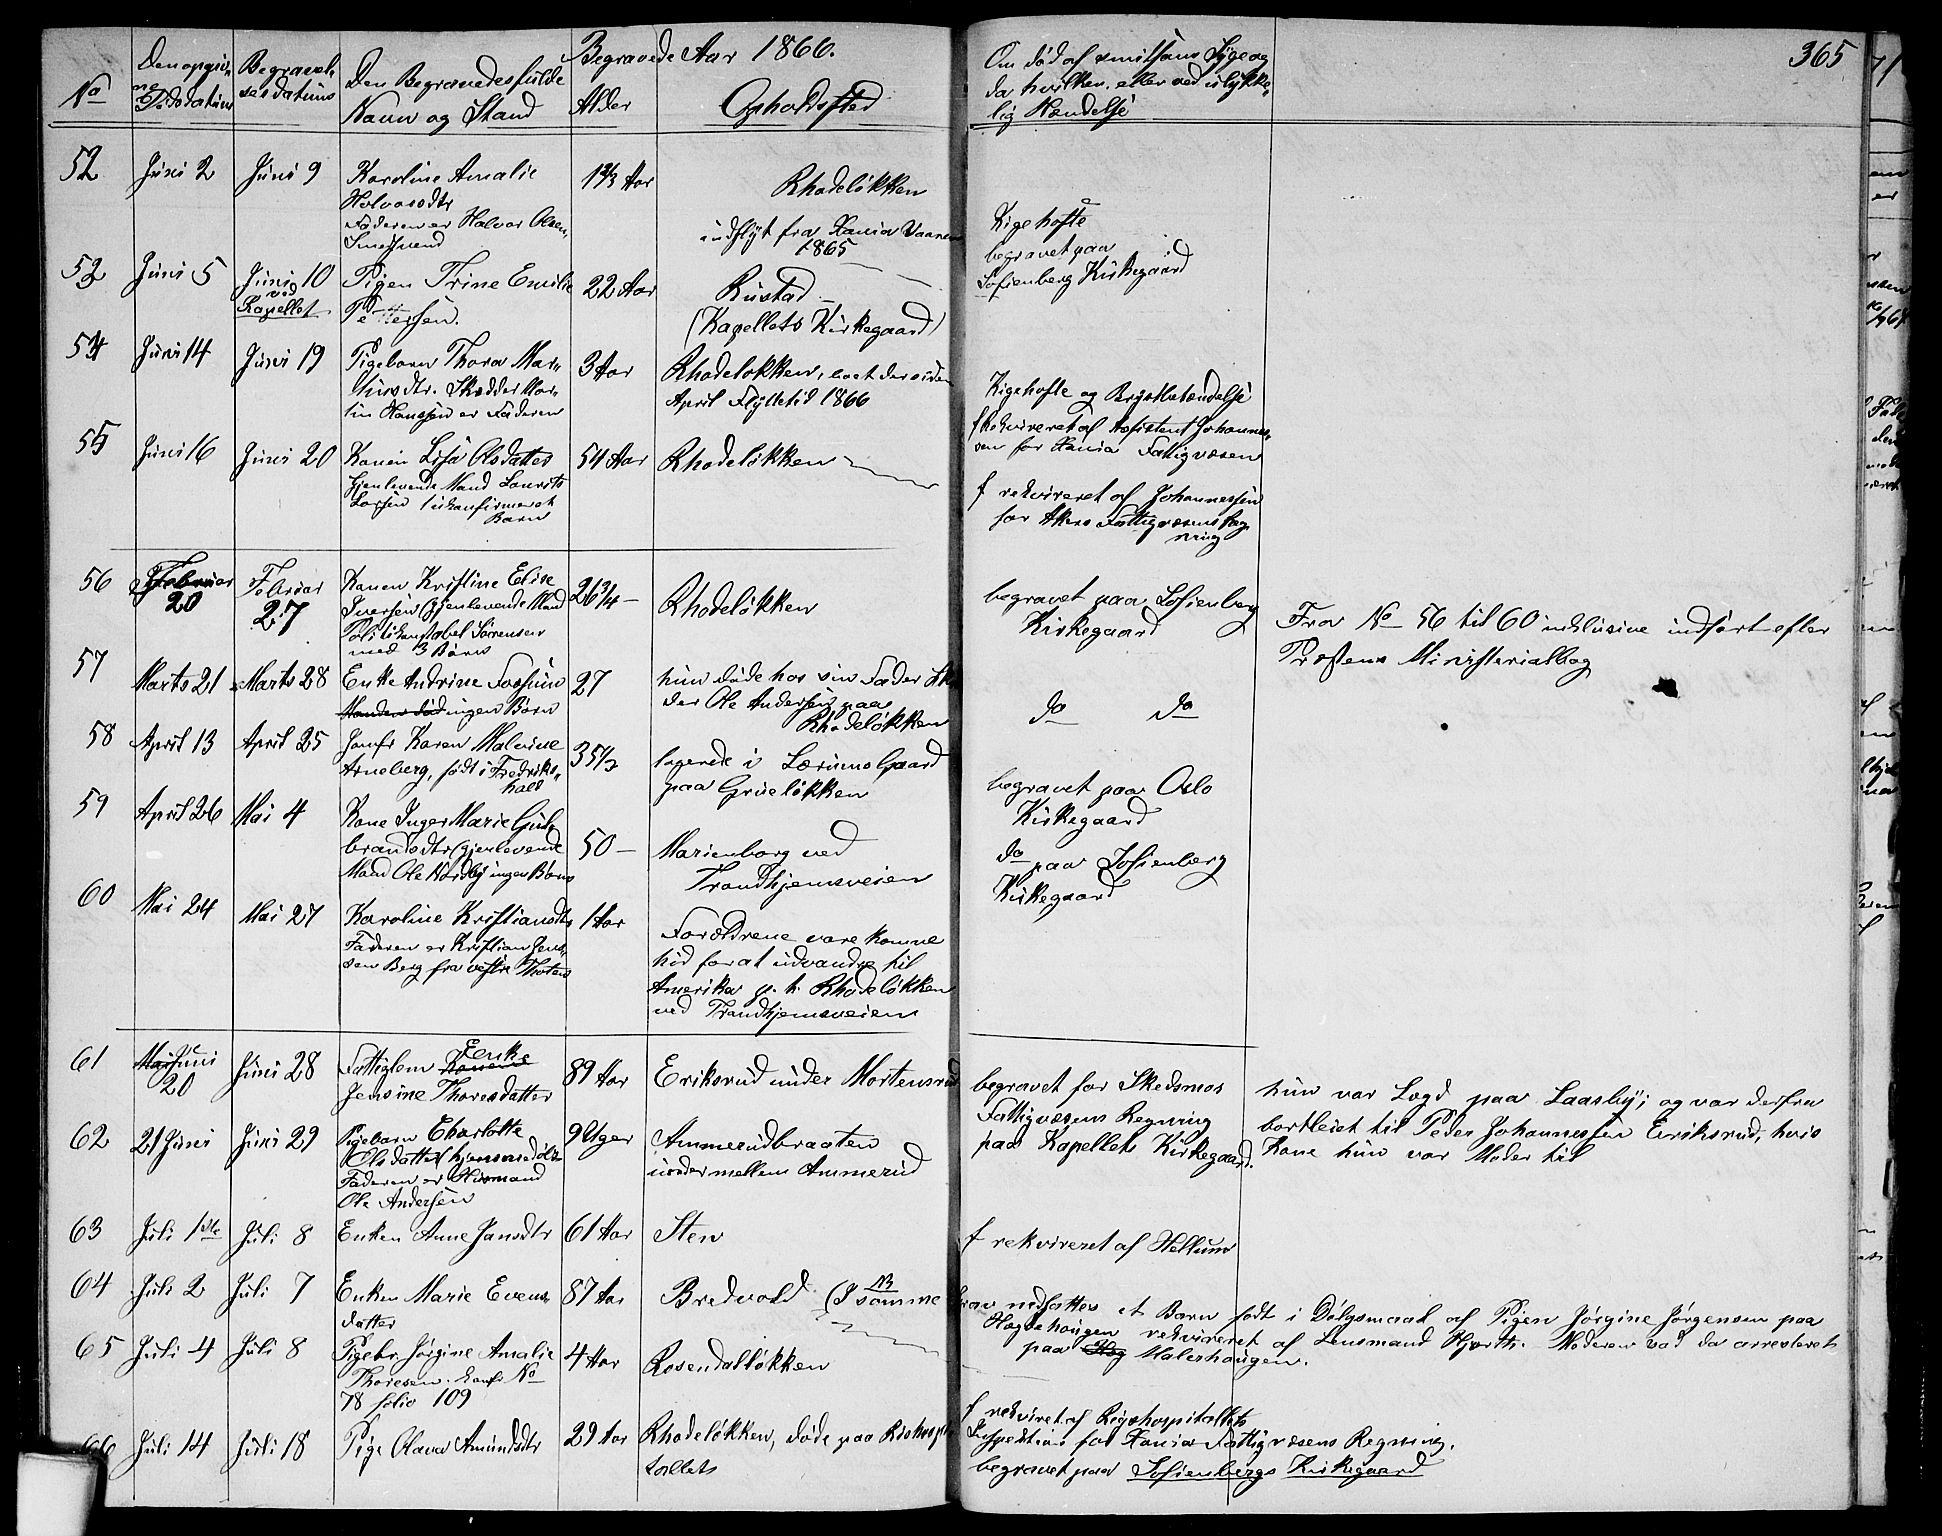 Begravede Aar 1866.
365
No
Den opgivne Dødsdatum
Begravelsesdatum
Den Begravedes fulde Navn og Stand
Alder
Opholdssted
Om død af smitsom Syge og
da hvilken, eller ved ulykke-
lig Hændelse
52 Juni 2 Juni 9 Karoline Amalie
Halvorsdtr
Faderen er Halvor Olsen,
Rhodeløkken
indflyt fra Xania Vaaren
1865
Kigehoste
begravet paa
Sofienberg Kirkegaard
53 Juni 5 Juni 10
ved
Kapellet
Pigen Trine Emilie
Pettersen.
22 Aar
Rustad
(Kapellets Kirkegaard)
54 Juni 14 Juni 19 Pigebarn Thora Mar-
tinsdtr. Skrædder Mar-
tin Hanssen er Faderen
3 Aar
Rhodeløkken, boet der siden
April Flyttetid 1866
Kigehoste og Brystbetændelse
f rekvireret af Assistent Johannes-
sen for Xania Fattigvæsen
55 Juni 16 Juni 20 Konen Lisa Olsdatter
Gjenlevende Mand Laurits
Larsen 1 ukonfirmeret
Barn
54 Aar
Rhodeløkken
f rekvireret af Johannessen
for Akers Fattigvæsens Reg
ning
56 Februar
20
Februar
27
Konen Kristine Elise
Iversen (gjenlevende Mand
Politikonstabel Sørensen
med 3 Børn
26 3/4 —
Rhodeløkken
begravet paa Sofienberg
Kirkegaard
Fra No 56 til 60 inklusive indført efter
Præstens Ministerialbog
57 Marts 21 Marts 28 Enke Andrine Fossum
Manden død ingen Børn
27
hun døde hos sin Fader
der Ole Andersen paa
Rhodeløkken
do do
58 April 13 April 25 Jomfr Karen Malvine
Arneberg, født i Fredriks-
hald
35 1/2
logerede i Lærums Gaard
paa Grüneløkken
begravet paa Oslo
Kirkegaard
59 April 26 Mai 4 Kone Inger Marie Gul-
brandsdtr (gjenlevende
Mand Ole Nordby ingen Børn
50 —
Marienborg ved
Trondhjemsveien
do paa Sofienberg
Kirkegaard
60 Mai 24 Mai 27 Karoline Kristiansdtr
Faderen er Kristian Jens-
sen Berg fra vestre Thoten
1 Aar
Forældrene vare komne
hid for at udvandre til
Amerika p. t. Rhodeløkken
ved Trondhjemsveien
61 Mai Juni
20
Juni 28
Fattiglem Konen Enke
Jensine Thoresdatter
89 Aar
Eriksrud under Mortensrud
begravet for Skedsmos
Fattigvæsens Regning
paa Kapellets Kirkegaard.
hun var Lægd paa Laasby; og var derfra
bortleiet til Peder Johannessen Eriksrud, hvis
Kone hun var Moder til
62 21 Juni Juni 29 Pigebarn Charlotte
Olsdatter (hjemmedøbt
Faderen er Husmand
Ole Andersen
9 Uger
Ammerudbraaten
under mellem Ammerud
63 Juli 1ste Juli 8 Enken Anne Jansdtr 61 Aar Sten
f rekvireret af Hellum
64 Juli 2 Juli 7 Enken Marie Evens-
datter
87 Aar
Bredvold (I NB samme
Grav nedsattes et Barn født i Dølgsmaal af Pigen Jørgine Jørgensen paa
Hagehougen rekvireret af Lensmand Hjorth. Moderen sad da arresteret
paa Maleshaugen.
65 Juli 4 Juli 8 Pigebr Jørgine Amalie
Thoresen. konfr No
78 folio 109
4 Aar
Rosendalløkken
66 Juli 14 Juli 18 Pige Olava Amundsdtr 29 Aar
Rhodeløkken, døde paa Rishospi-
tallets
f rekviret af Rigshospitallets
Inspektion for Xania Fattigvæsens Regning.
begravet paa Sofienbergs Kirkegaard